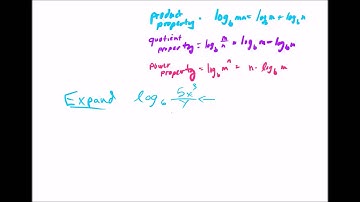 product property · log_b mn = log_b m + log_b n
quotient property = log_b m/n = log_b m - log_b n
power property = log_b m^n = n · log_b m
Expand log_6 5x^3/y ←